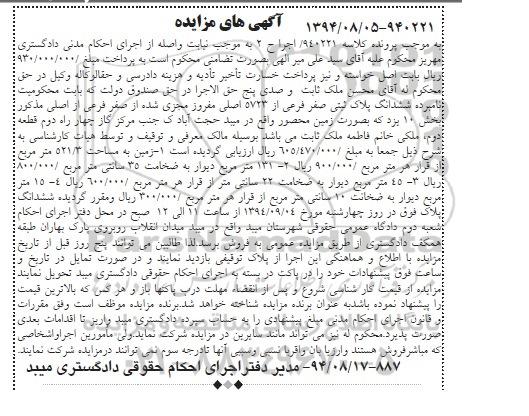 آگهی های مزایده ۱۳۹۴/۰۸/۰۵-۹۴۰۲۲۱
به موجب پرونده کلاسه ۹۴۰۲۲۱/ اجرا ح ۲ به موجب نیابت واصله از اجرای احکام مدنی دادگستری
مهریز محکوم علیه آقای سید علی میر الهی بصورت تضامنی محکوم است به پرداخت مبلغ ۹۳۰/۰۰۰/۰۰۰
ریال بابت اصل خواسته و نیز پرداخت خسارت تأخیر تأدیه و هزینه دادرسی و حقالوکاله وکیل در حق
محکوم له آقای محسن ملک ثابت و صدی پنج حق الاجرا در حق صندوق دولت که بابت محکومیت
نامبرده ششدانگ پلاک ثبتی صفر فرعی از ۵۷۲۳ اصلی مفروز مجزی شده از صفر فرعی از اصلی مذکور
بخش ۱۰ یزد که بصورت زمین محصور واقع در میبد حجت آباد ک جنب مرکز گاز چهار راه دوم قطعه
دوم، ملکی خانم فاطمه ملک ثابت می باشد بوسیله مالک معرفی و توقیف و توسط هیات کارشناسی به
شرح ذیل جمعا به مبلغ ۶۰۵/۴۷۰/۰۰۰ ریال ارزیابی گردیده است ۱-زمین به مساحت ۵۲۱/۳ متر مربع
از قرار هر متر مربع ۹۰۰/۰۰۰/ ریال ۲- ۱۳۱ متر مربع دیوار به ضخامت ۳۵ سانتی متر مربع ۸۰۰/۰۰۰/
ریال ۳- ۴۵ متر مربع دیوار به ضخامت ۲۲ سانتی متر از قرار هر متر مربع ۶۰۰/۰۰۰/ ریال ۴- ۱۵ متر
مربع دیوار به ضخانت ۱۰ سانتی متر مربع از قرار هر متر مربع ۳۰۰/۰۰۰/ ریال ومقرر گردیده ششدانگ
پلاک فوق در روز چهارشنبه مورخ ۱۳۹۴/۰۹/۰۴ از ساعت ۱۱ الی ۱۲ صبح در محل دفتر اجرای احکام
شعبه دوم دادگاه عمومی حقوقی شهرستان میبد واقع در میبد میدان انقلاب روبروی پارک بهاران طبقه
همکف دادگستری از طریق مزایده عمومی به فروش برسد.لذا طالبین می توانند پنج روز قبل از تاریخ
مزایده با اطلاع و هماهنگی این اجرا از پلاک توقیفی بازدید نمایند و در صورت تمایل در تاریخ و
ساعت فوق پیشنهادات خود را در پاکت در بسته به اجرای احکام حقوقی دادگستری میبد تحویل نمایند
مزایده از قیمت کار شناسی شروع و پس از انقضاء مهلت درب پاکتها باز و هر کس که بالاترین قیمت
را پیشنهاد نموده باشدبه عنوان برنده مزایده شناخته خواهد شد.برنده مزایده موظف است وفق مقررات
و قانون اجرای احکام مدنی مبلغ پیشنهادی را به حساب سپرده دادگستری میبد واریز تا اقدامات بعدی
صورت پذیرد.محکوم له نیز می تواند مانند سایرین در مزایده شرکت نماید.ولی مأمورین اجراواشخاصی
که مباشرفروش هستند وارزیا بان واقربا نسبی وسببی آنها تادرجه سوم نمی توانند درمزایده شرکت نمایند.
۹۴/۰۸/۱۷-۸۸۷- مدیر دفتراجرای احکام حقوقی دادگستری میبد